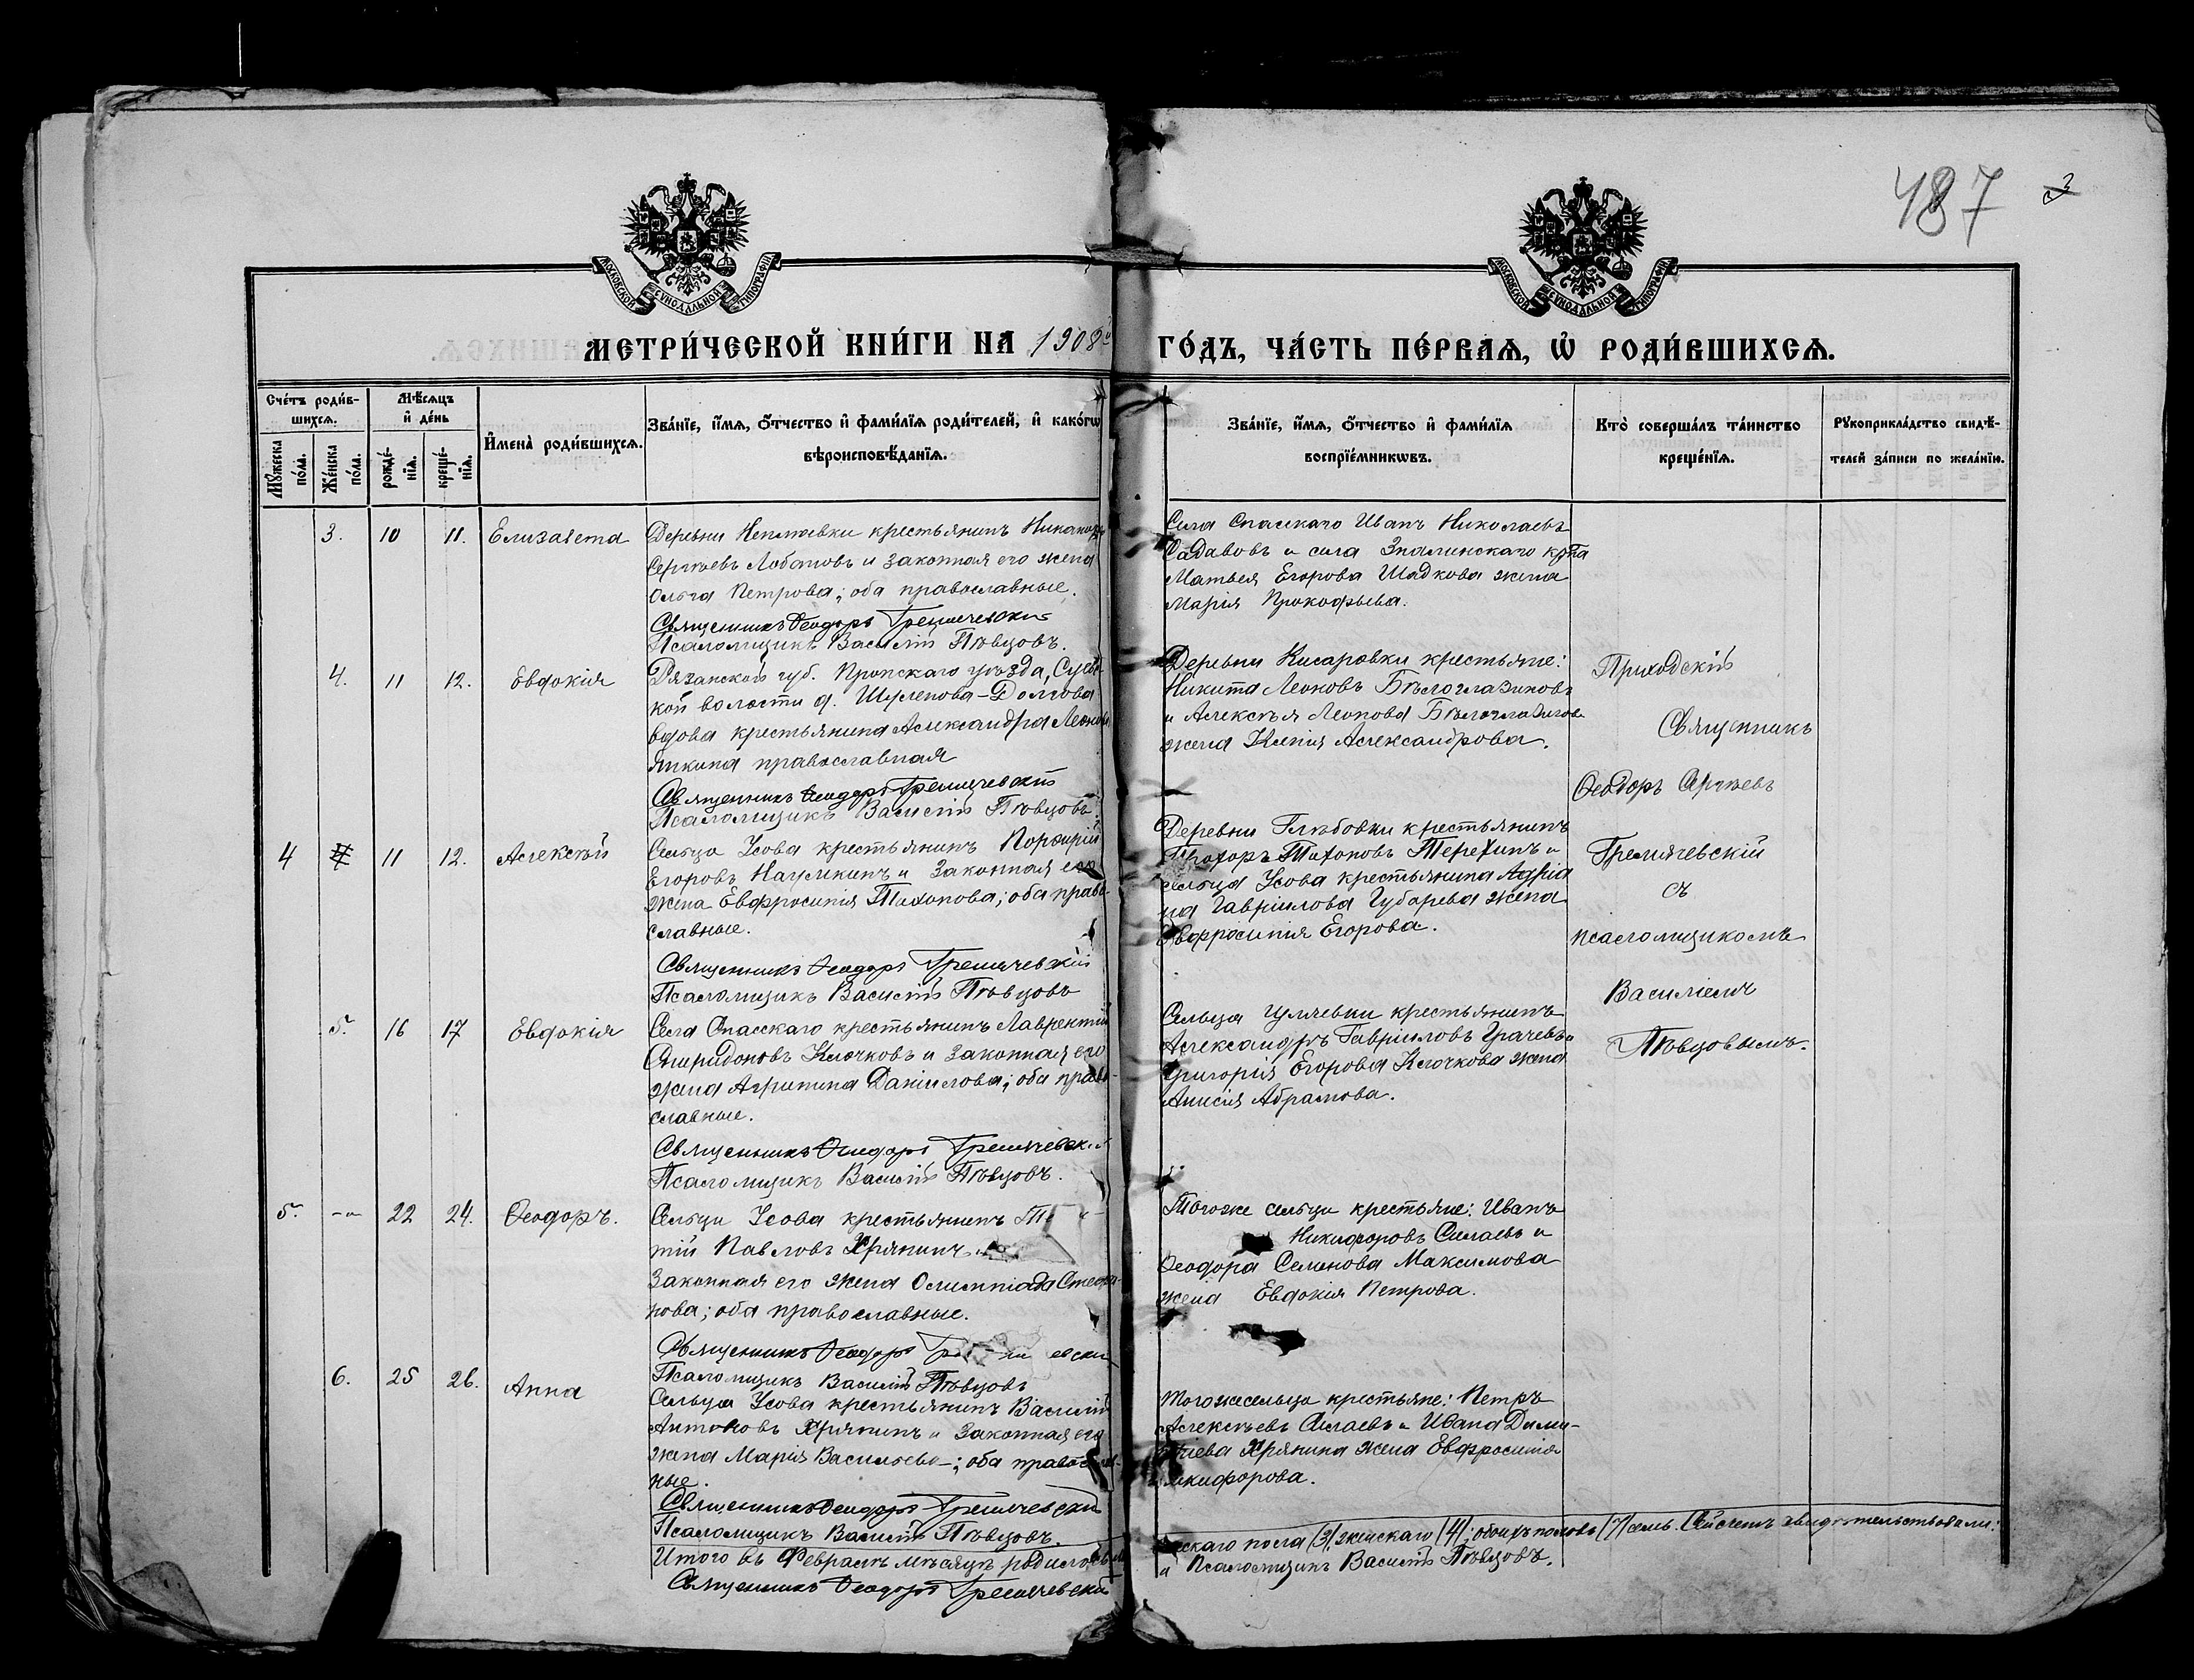 487 3
МОСКОВСКОЙ СѴНОДАЛЬНОЙ ТИПОГРАФІИ
МОСКОВСКОЙ СѴНОДАЛЬНОЙ ТИПОГРАФІИ
МЕТРИ́ЧЕСКОЙ КНИ́ГИ НА 1908й ГО́ДЪ, ЧА́СТЬ ПЕ́РВАѦ, Ѡ҆ РОДИ́ВШИХСѦ.
Сче́тъ роди́в-
шихсѧ.
Мѹ́жеска по́ла.
Же́нска по́ла.
Мѣ́сѧцъ
и҆ де́нь
рожде́-
нїѧ.
креще́-
нїѧ.
И҆мена̀ роди́вшихсѧ.
Зва́нїе, и҆́мѧ, ѻ҆́тчество и҆ фами́лїѧ роди́телей, и҆ како́гѡ
вѣроисповѣ́данїѧ.
Зва́нїе, и҆́мѧ, ѻ҆́тчество и҆ фами́лїѧ
воспрїе́мникѡвъ.
Кто̀ соверша́лъ та́инство
креще́нїѧ.
Рѹкоприкла́дство свидѣ́-
телей за́писи по жела́нїю.
3. 10 11. Елизавета
Деревни крестьянинъ
Сергѣевъ Лобановъ и законная его жена
Ольга Петрова; оба православные.
Священникъ Ѳеодоръ Гремячевскій
Псаломщикъ Василій Пѣвцовъ.
Села Спасскаго Иванъ Николаевъ
Садавовъ и села кр-на
Матвея Егорова Шадкова жена
Марія Прокофьева.
4. 11 12. Евдокія
Рязанской губ. Пронскаго уѣзда,
кой волости д. Шулепова-Долгова
вдова крестьянина Александра
Яшкина православная
Священникъ Ѳеодоръ Гремячевскій
Псаломщикъ Василій Пѣвцовъ.
Деревни Кисаровки крестьяне:
Никита Леоновъ Бѣлоглазиковъ
и Алексѣя Леонова Бѣлоглазикова
жена Ксенія Александрова.
4 11 12. Алексѣй
Сельца Усова крестьянинъ Порфирій
Егоровъ Наумкинъ и законная его
жена Евфросинія Тихонова; оба право-
славные.
Священникъ Ѳеодоръ Гремячевскій
Псаломщикъ Василій Пѣвцовъ
Деревни Глѣбовки крестьянинъ
Прохоръ Тихоновъ Терехинъ и
сельца Усова крестьянина Адріа
на Гавріилова Губарева жена
Евфросинія Егорова.
5. 16 17 Евдокія
Села Спасскаго крестьянинъ Лаврентій
Спиридоновъ Клочковъ и законная его
жена Агрипина Даніилова; оба право-
славные.
Священникъ Ѳеодоръ Гремячевскій
Псаломщикъ Василій Пѣвцовъ.
Сельца крестьянинъ
Александръ Гавріиловъ Грачевъ и
Григорія Егорова Клочкова жена
Анисія Абрамова.
5. -"- 22 24. Ѳеодоръ.
Сельца Усова крестьянинъ
тій Павловъ Хрянинъ и
законная его жена Олимпіада Стефа-
нова; оба православные.
Священникъ Ѳеодоръ
Псаломщикъ Василій Пѣвцовъ
Тогоже сельца крестьяне: Иванъ
Никифоровъ Силаевъ и
Ѳеодора Семенова Максимова
жена Евдокія Петрова.
6. 25 26. Анна
Сельца Усова крестьянинъ Василій
Антоновъ Хрянинъ и законная его
жена Марія Васильева; оба православ-
ные.
Священникъ Ѳеодоръ Гремячевскій
Псаломщикъ Василій Пѣвцовъ.
Тогожесельца крестьяне: Петръ
Алексѣевъ Силаевъ и Ивана Дими-
тріева Хрянина жена Евфросинія
Никифорова.
Приходскій
Священникъ
Ѳеодоръ Сергѣевъ
Гремячевскій
съ
псаломщикомъ
Василіемъ
Пѣвцовымъ.
Итого въ Февралѣ мѣсяцѣ родилось мужескаго пола (3) женскаго (4), обоихъ половъ (7) семь. Сей счетъ свидѣтельствовали:
Священникъ Ѳеодоръ Гремячевскій и Псаломщикъ Василій Пѣвцовъ.